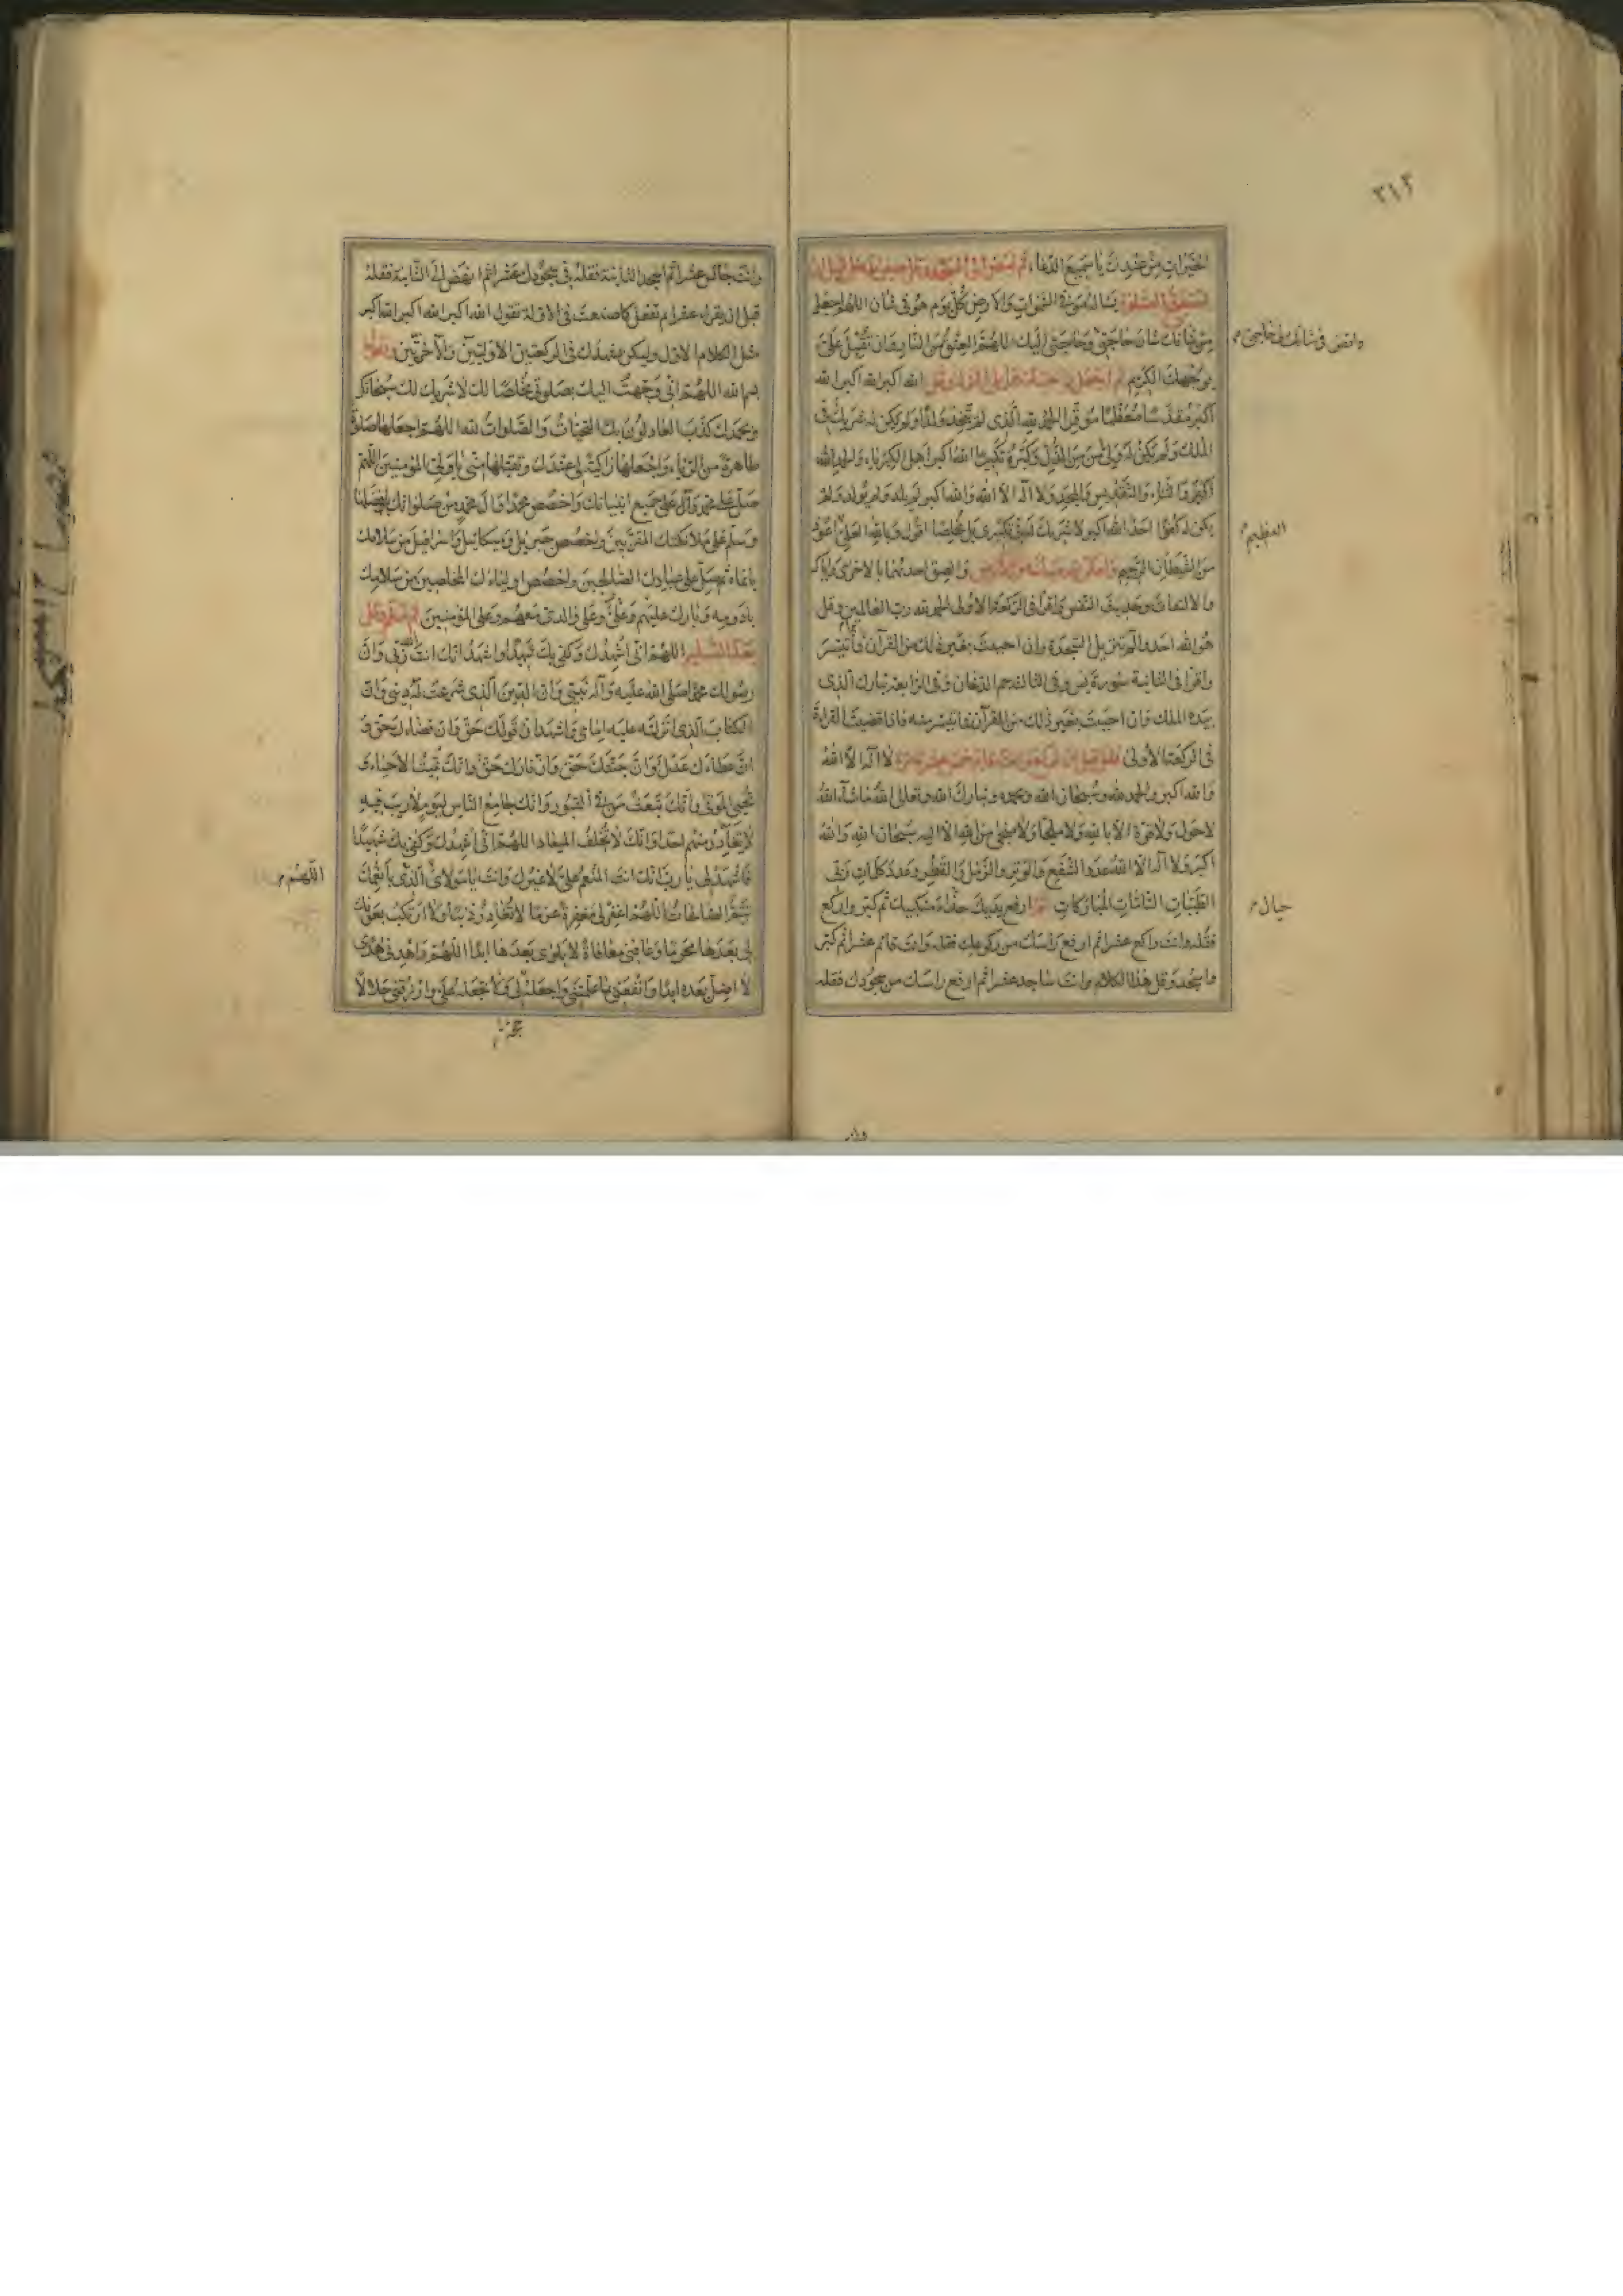 ٣١٢
الخيرات من عندك يا سميع الدعاء ثم
يسأله من في السموات والارض كل يوم هو في شان اللهم اجعل
من شانك شان حاجتي وحاجتي اليك اللهم العتق من النار وان تقبل علي
واقض في شانك حاجتي
بوجهك الكريم ثم الله اكبر الله اكبر الله
اكبر مقدسا معظما موقرا الحمد لله الذي لم يتخذ ولدا ولم يكن له شريك في
الملك ولم يكن له ولي من الذل وكبره تكبيرا الله اكبر اهل الكبرياء والحمد لله
والثناء والتقديس والمجد ولا اله الا الله والله اكبر لم يلد ولم يولد ولم
يكن له كفوا احد الله اكبر لا شريك له في تكبيري بل مخلصا اقول وبالله العلي اعوذ
العظيم
من الشيطان الرجيم والصق احديهما بالاخرى واياك
والالتفات وحديث النفس واقرأ في الركعة الاولى الحمد لله رب العالمين وقل
هو الله احد والم تنزيل السجدة وان احببت بغير ذلك من القرآن فما تيسر
واقرأ في الثانية سورة يس وفي الثالثة حم الدخان وفي الرابعة تبارك الذي
بيده الملك وان احببت بغير ذلك من القرآن فما تيسر منه فاذا قضيت القراءة
في الركعة الاولى لا اله الا الله
والله اكبر والحمد لله وسبحان الله وبحمده وتبارك الله وتعالى الله ما شاء الله
لا حول ولا قوة الا بالله ولا ملجأ ولا منجى من الله الا اليه سبحان الله والله
اكبر ولا اله الا الله عدد الشفع والوتر والرمل والقطر وعدد كلمات ربي
الطيبات التامات المباركات ثم ارفع يديك حذاء منكبيك ثم كبر واركع
حيال
فقله وانت راكع عشرا ثم ارفع راسك من ركوعك فقله وانت قائم عشرا ثم كبر
واسجد وقل هذا الكلام وانت ساجد عشرا ثم ارفع راسك من سجودك فقله
وانت جالس عشرا ثم اسجد الثانية فقله في سجودك عشرا ثم انهض الى الثانية فقله
قبل ان يقراء عشرا ثم تفعل كما صنعت في الاولة تقول الله اكبر الله اكبر الله اكبر
مثل الكلام الاول وليكن تشهدك في الركعتين الاوليين والآخرتين
بسم الله اللهم اني وجهت اليك بصلوتي مخلصا لك لا شريك لك سبحانك
وبحمدك كذب العادلون بك التحيات والصلوات لله اللهم اجعلها صلوة
طاهرة من الرياء واجعلها زاكية لي عندك وتقبلها مني يا ولي المؤمنين اللهم
صل على محمد وآل وعلى جميع انبيائك واخصص محمدا وآل محمد من صلواتك بافضلها
وسلم على ملائكتك المقربين واخصص جبريل وميكائيل واسرافيل من سلامك
بانماه ثم صل على عبادك الصالحين واخصص اولياءك المخلصين من سلامك
بادومه وبارك عليهم وعلي وعلى والدي معهم وعلى المؤمنين ثم سلم وقل
بعد التسليم اللهم اني اشهدك وكفى بك شهيدا واشهد انك انت ربي وان
رسولك محمدا صلى الله عليه وآله نبيي وان الدين الذي شرعت له ديني وان
الكتاب الذي انزلته عليه امامي واشهد ان قولك حق وان قضاءك حق و
ان عطاءك عدل وان جنتك حق وان نارك حق وانك تميت الاحياء و
تحيي الموتى وانك تبعث من في القبور وانك جامع الناس ليوم لا ريب فيه
لا يغادر منهم احد وانك لا تخلف الميعاد اللهم اني اشهدك وكفى بك شهيدا
فاشهد لي يا رب انك انت المنعم علي لا غيرك وانت يا مولاي الذي بانعمك
اللهم
تتم الصالحات اللهم اغفر لي مغفرة عزما لا تغادر ذنبا ولا ارتكب بعونك
لي بعدها محرما وعافني معافاة لا بلوى بعدها ابدا اللهم واهدني هدى
لا اضل بعده ابدا وانفعني بما علمتني واجعله لي ولا تجعله علي وارزقني حلالا